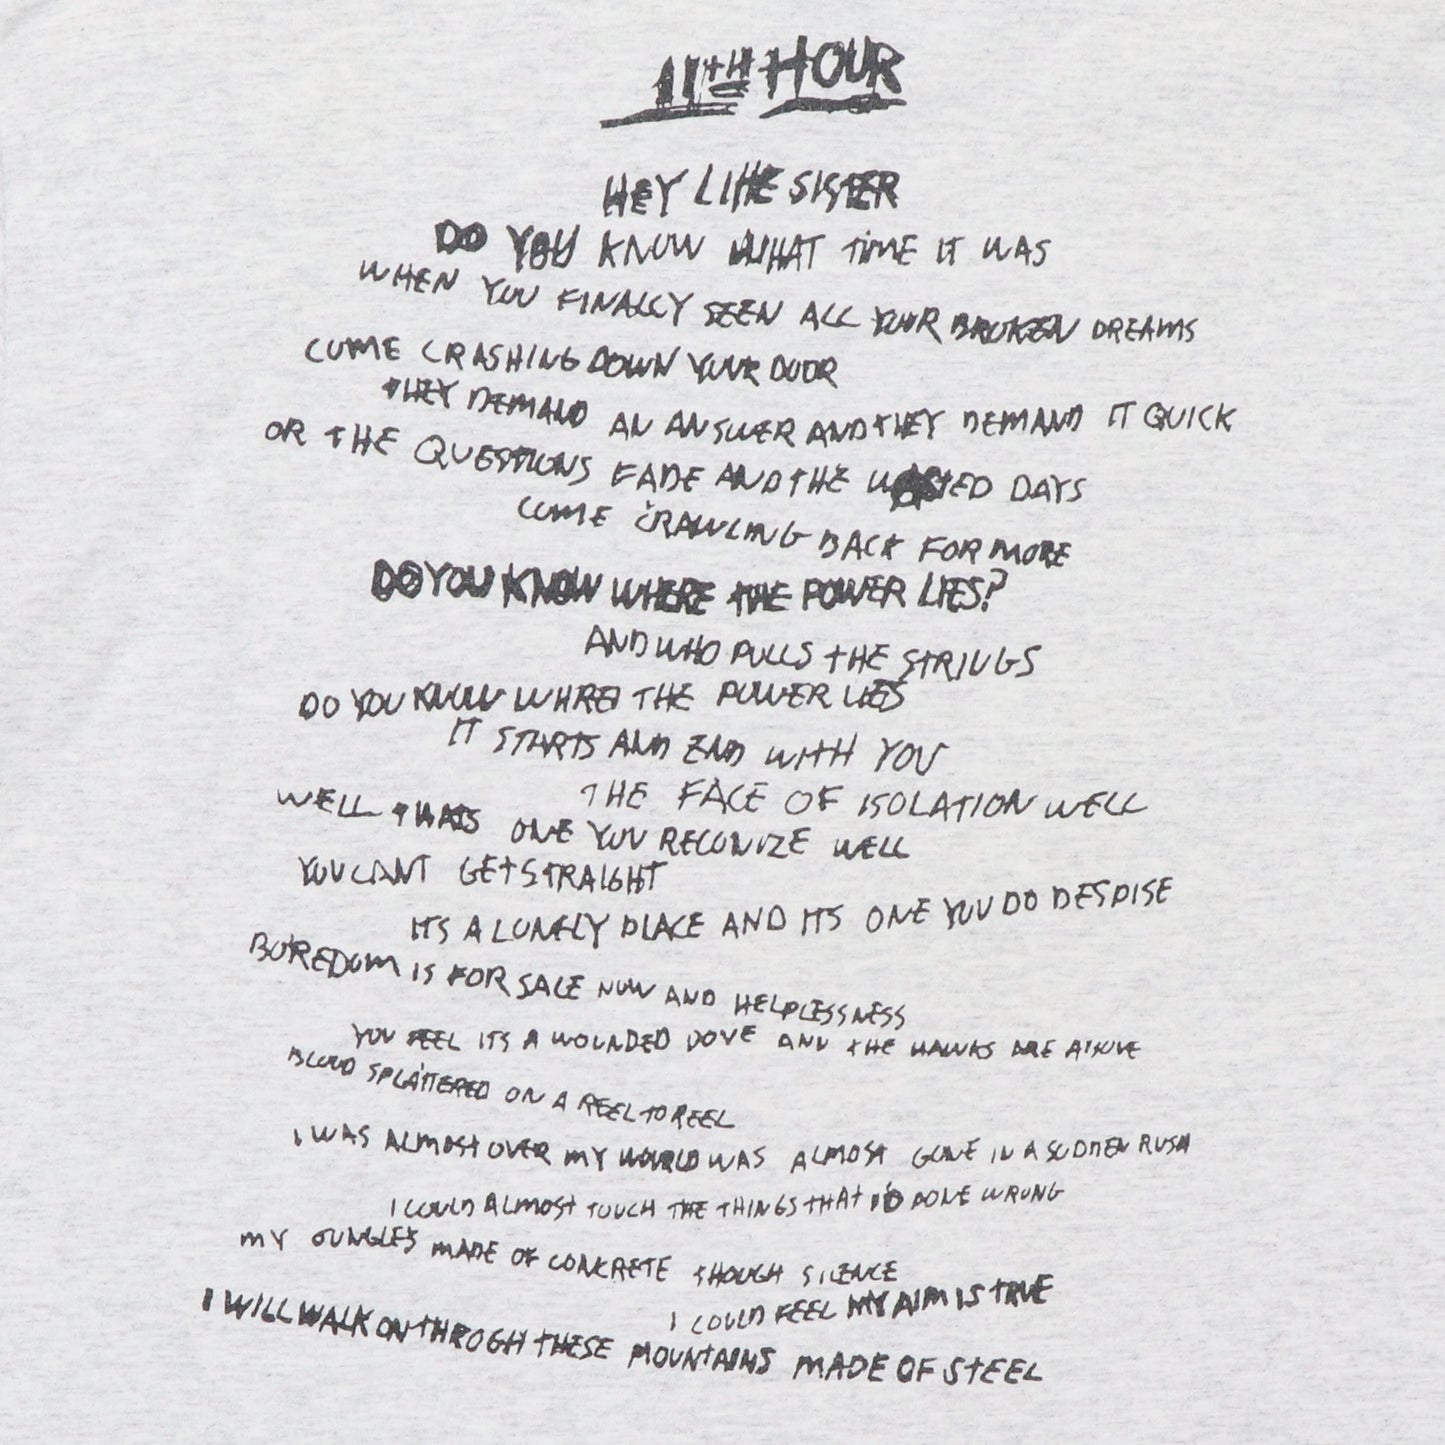 11TH HOUR
HEY LIHE SISTER
DO YOU KNOW WHAT TIME IT WAS
WHEN YOU FINALLY SEEN ALL YOUR BROKEN DREAMS
COME CRASHING DOWN YOUR DOOR
THEY DEMAND AN ANSWER AND THEY DEMAND IT QUICK
OR THE QUESTIONS FADE AND THE WASTED DAYS
COME CRAWLING BACK FOR MORE
DO YOU KNOW WHERE THE POWER LIES?
AND WHO PULLS THE STRINGS
DO YOU KNOW WHRE THE POWER LIES
IT STARTS AND END WITH YOU
THE FACE OF ISOLATION WELL
WELL THATS ONE YOU RECONIZE WELL
YOU CANT GET STRAIGHT
ITS A LONELY PLACE AND ITS ONE YOU DO DESPISE
BOREDOM IS FOR SALE NOW AND HELPLESSNESS
YOU FEEL ITS A WOUNDED DOVE AND THE HAWKS ARE ABOVE
BLOOD SPLATTERED ON A REEL TO REEL
I WAS ALMOST OVER MY WORLD WAS ALMOST GONE IN A SUDDEN RUSH
I COULD ALMOST TOUCH THE THINGS THAT I'D DONE WRONG
MY JUNGLES MADE OF CONCRETE THOUGH SILENCE
I COULD FEEL MY AIM IS TRUE
I WILL WALK ON THROGH THESE MOUNTAINS MADE OF STEEL